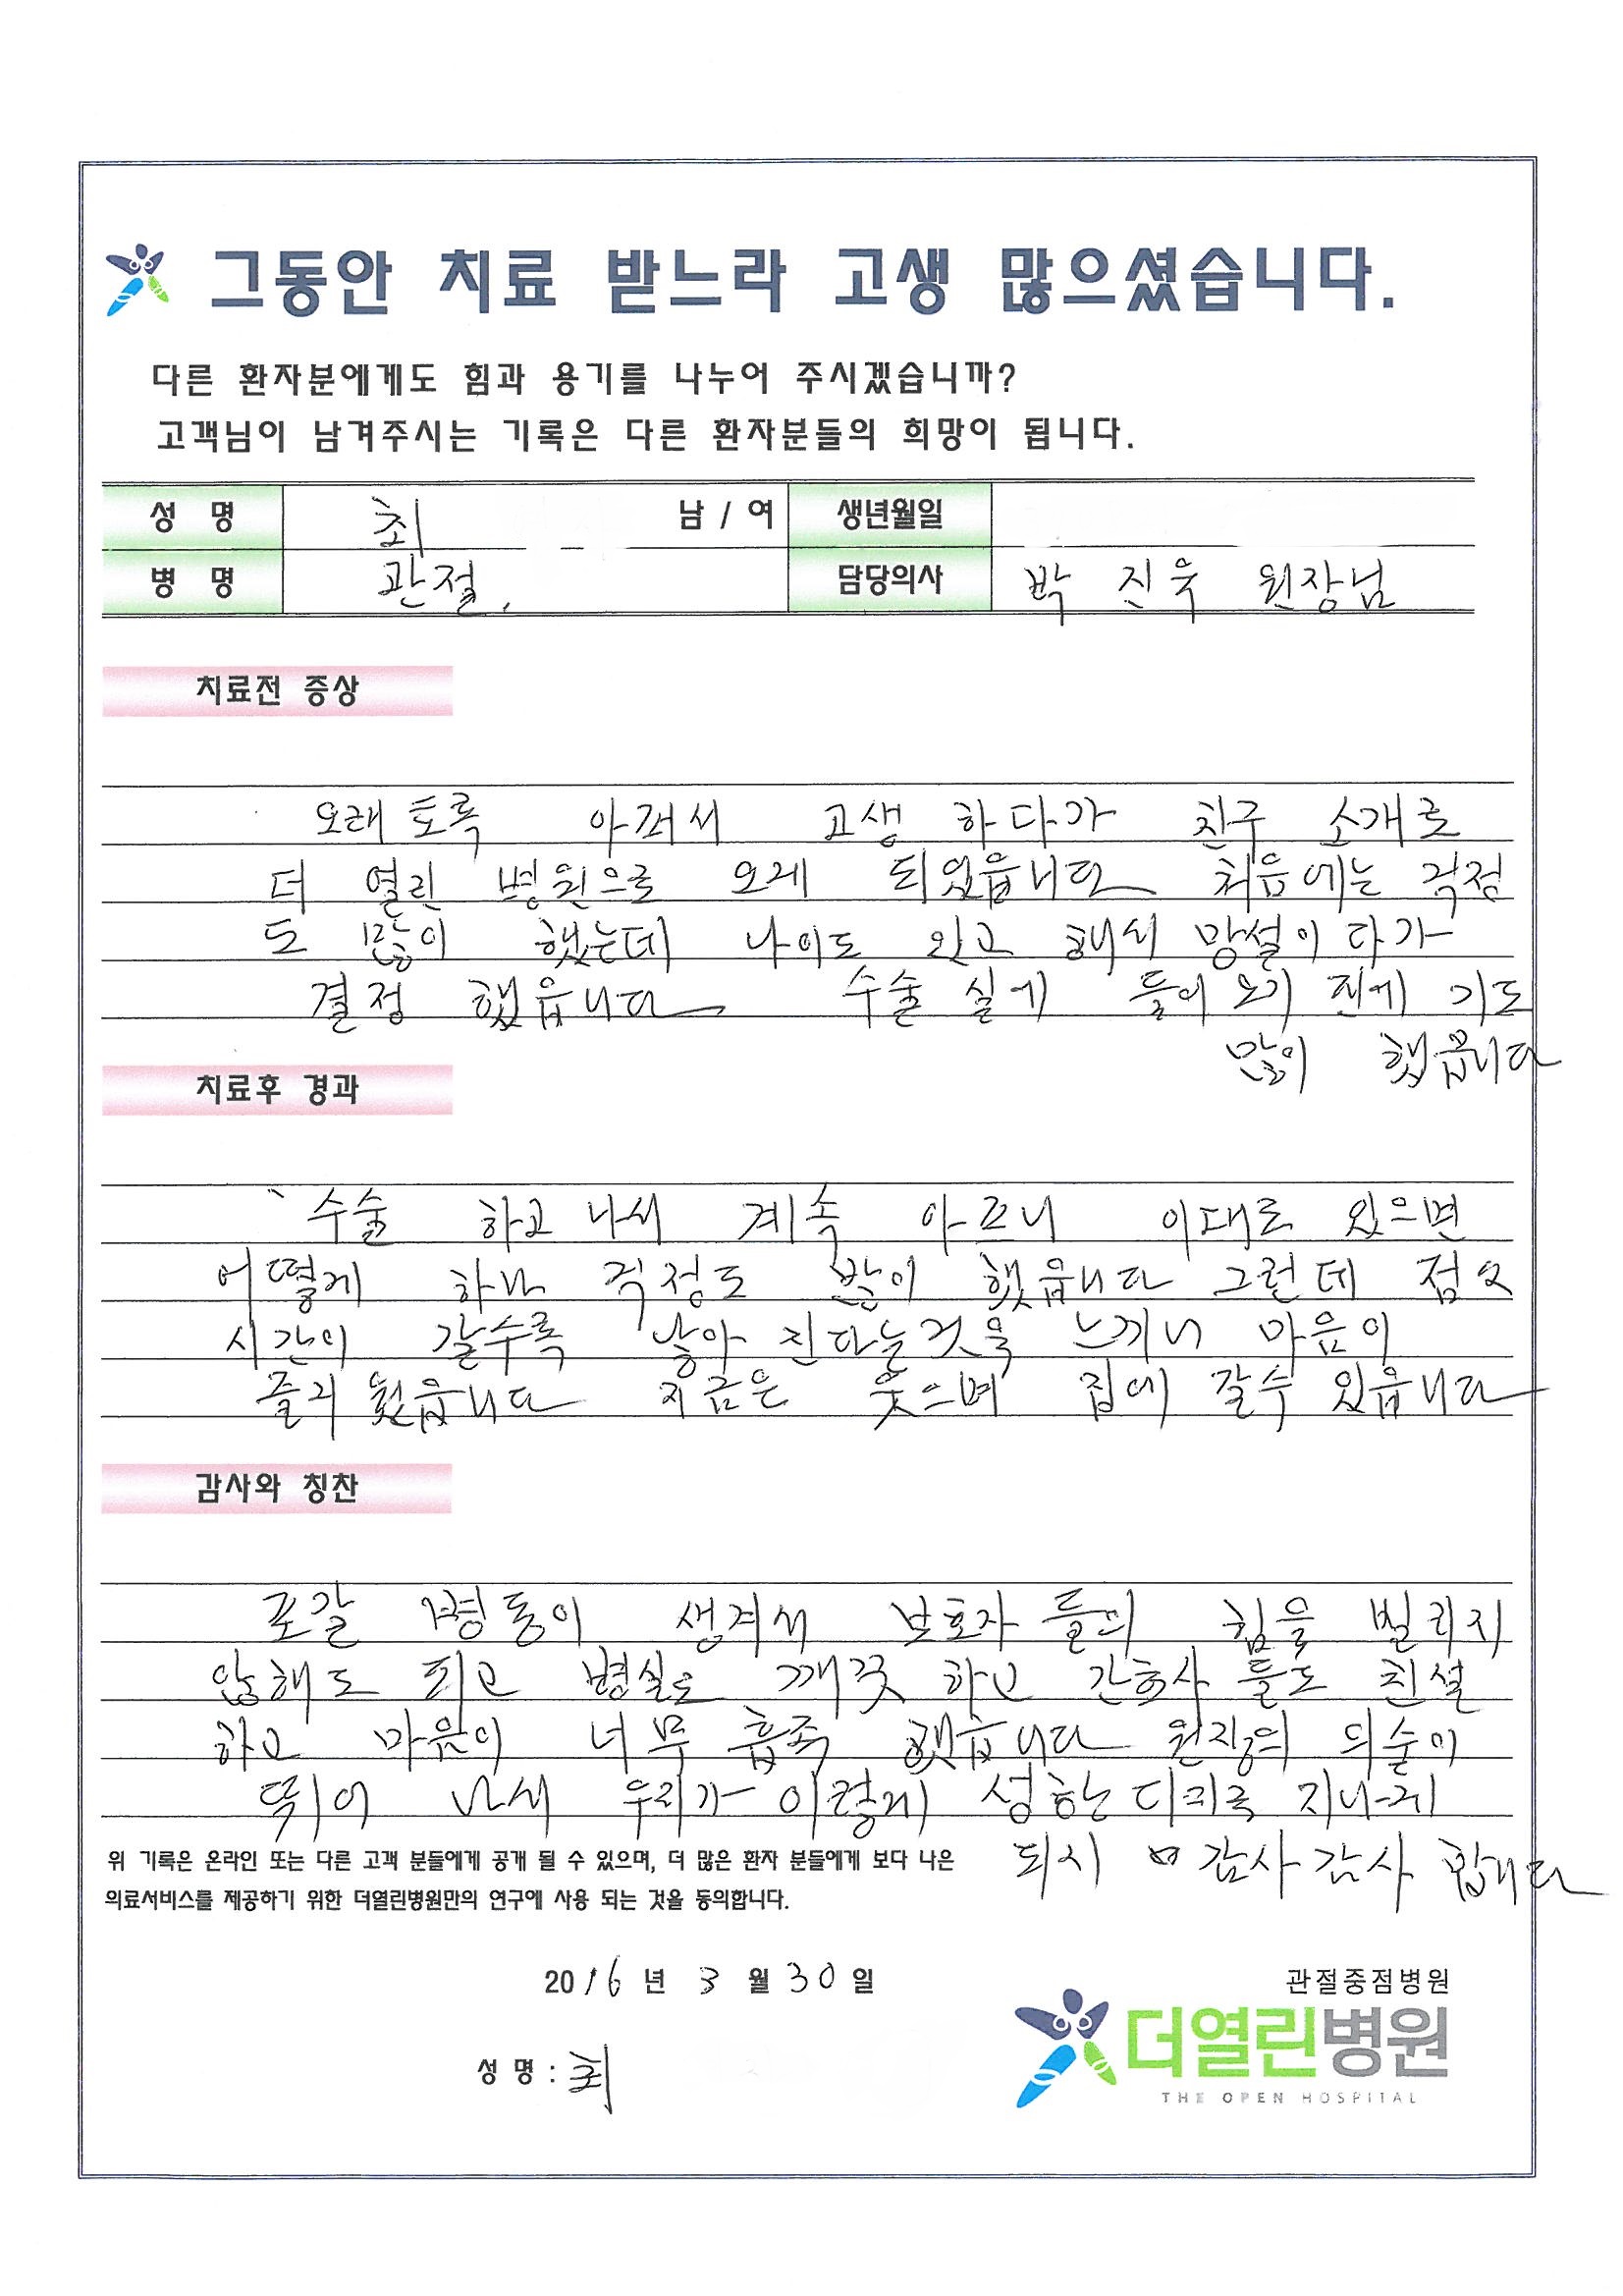 그동안 치료 받느라 고생 많으셨습니다.
다른 환자분에게도 힘과 용기를 나누어 주시겠습니까?
고객님이 남겨주시는 기록은 다른 환자분들의 희망이 됩니다.
성 명 최 남 / 여 생년월일
병 명 관절, 담당의사 박 진욱 원장님
치료전 증상
오래토록 아퍼서 고생 하다가 친구 소개로
더 열린 병원으로 오게 되었읍니다 처음에는 걱정
도 많이 했는데 나이도 있고 해서 망설이다가
결정 했읍니다 수술 실에 들어오기 전에 기도
많이 했읍니다
치료후 경과
수술 하고 나서 계속 아프니 이대로 있으면
어떻게 하나 걱정도 많이 했읍니다 그런데 점요
시간이 갈수록 낳아 진다는것을 느끼니 마음이
즐거웠읍니다 지금은 웃으며 집에 갈수 있읍니다
감사와 칭찬
포괄 병동이 생겨서 보호자 들의 힘을 빌리지
않해도 되고 병실도 깨끗 하고 간호사 들도 친절
하고 마음이 너무 흡족 했습니다 원장의 의술이
뛰어 나서 우리가 이렇게 성한 다리로 지나게
되시 감사감사 합니다
위 기록은 온라인 또는 다른 고객 분들에게 공개 될 수 있으며, 더 많은 환자 분들에게 보다 나은
의료서비스를 제공하기 위한 더열린병원만의 연구에 사용 되는 것을 동의합니다.
2016 년 3 월 30 일
관절중점병원
더열린병원
성 명 : 최
THE OPEN HOSPITAL